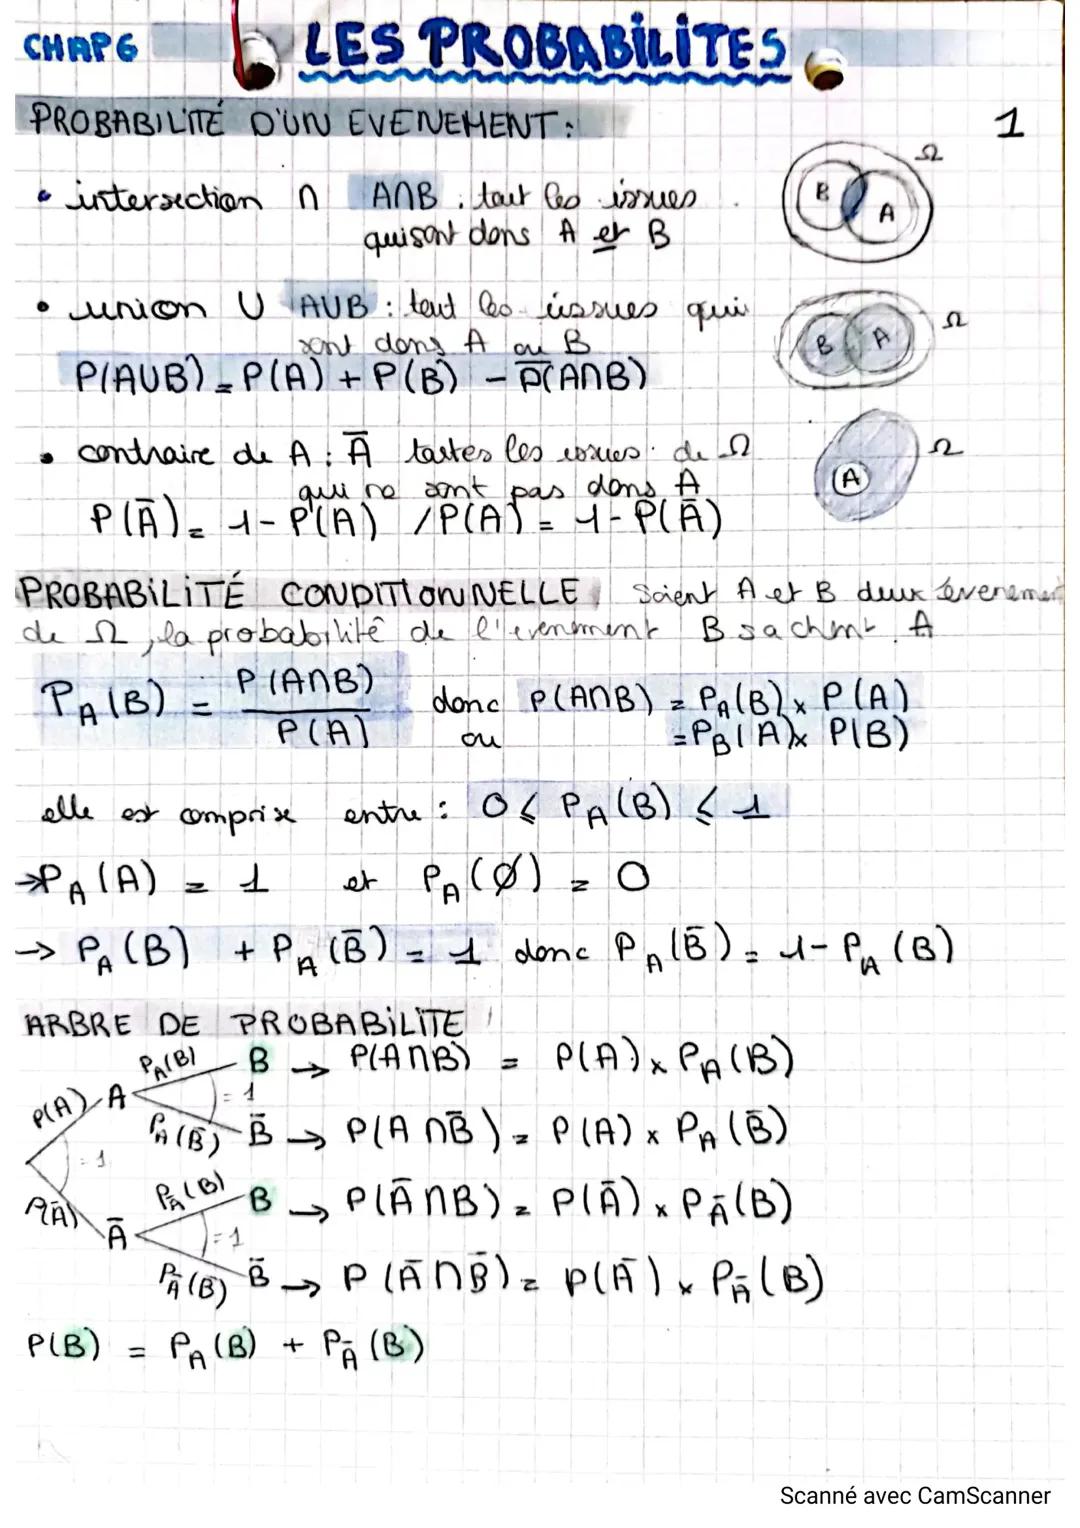 CHAP6 LES PROBABiLiTES
PROBABiLiTÉ D'UN EVENEMENT:
1
• intersection ∩ A∩B : tout les issues
qui sont dans A et B
B A Ω
• union U AUB : tout les issues qui
sont dans A ou B
P(AUB) = P(A) + P(B) - P(A∩B)
B A Ω
• contraire de A : Ā toutes les issues de Ω
qui ne sont pas dans A
P(Ā) = 1 - P(A) / P(A) = 1 - P(Ā)
A Ω
PROBABiLiTÉ CONDITIONNELLE Soient A et B deux évenemen
de Ω, la probabilité de l'evenement B sachant A
P_A(B) = P(A∩B) / P(A) donc P(A∩B) = P_A(B) x P(A)
ou = P_B(A) x P(B)
elle est comprise entre : 0 ⩽ P_A(B) ⩽ 1
→ P_A(A) = 1 et P_A(Ø) = 0
→ P_A(B) + P_A(B̄) = 1 donc P_A(B̄) = 1 - P_A(B)
ARBRE DE PROBABiLiTE
P(A) A P_A(B) B → P(A∩B) = P(A) x P_A(B)
= 1
P_A(B̄) B̄ → P(A∩B̄) = P(A) x P_A(B̄)
= 1
P(Ā) Ā P_Ā(B) B → P(Ā∩B) = P(Ā) x P_Ā(B)
= 1
P_Ā(B̄) B̄ → P(Ā∩B̄) = P(Ā) x P_Ā(B)
P(B) = P_A(B) + P_Ā(B)
Scanné avec CamScanner